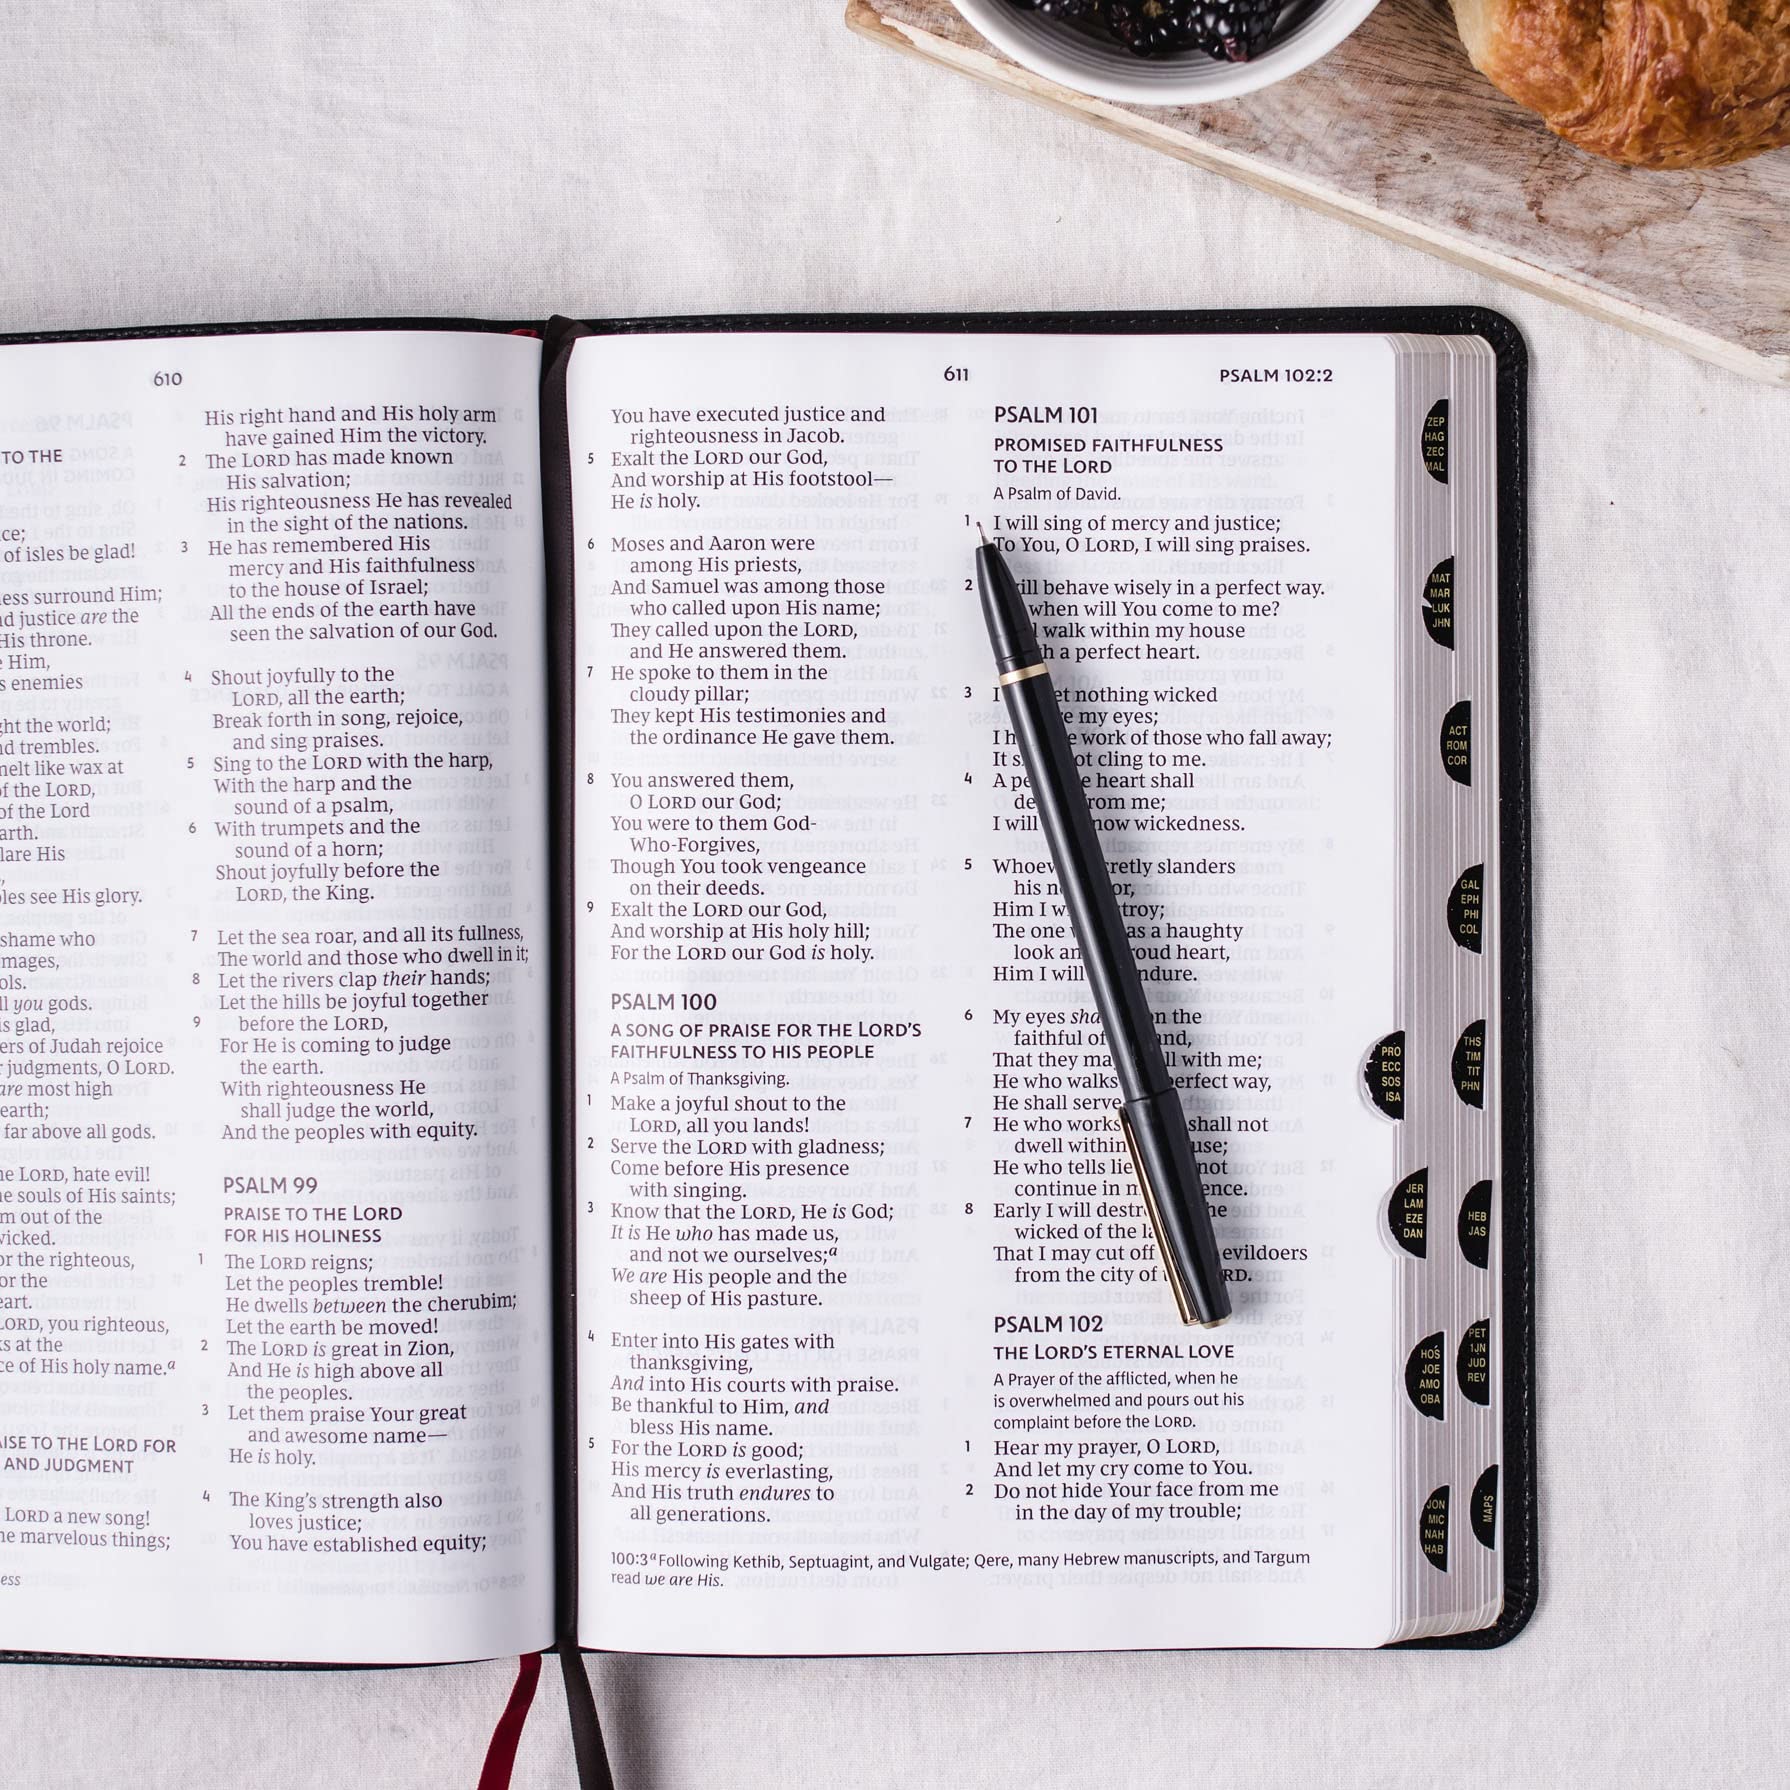 610
TO THE
of isles be glad!
surround Him;
justice are the
His throne.
Him,
enemies
the world;
trembles.
like wax at
of the LORD,
of the Lord
His
see His glory.
shame who
you gods.
is glad,
of Judah rejoice
judgments, O LORD.
are most high
earth;
far above all gods.
LORD, hate evil!
souls of His saints;
out of the
for the righteous,
for the
LORD, you righteous,
at the
of His holy name.a
TO THE LORD FOR
AND JUDGMENT
LORD a new song!
marvelous things;
His right hand and His holy arm
have gained Him the victory.
2 The LORD has made known
His salvation;
His righteousness He has revealed
in the sight of the nations.
3 He has remembered His
mercy and His faithfulness
to the house of Israel;
All the ends of the earth have
seen the salvation of our God.
4 Shout joyfully to the
LORD, all the earth;
Break forth in song, rejoice,
and sing praises.
5 Sing to the LORD with the harp,
With the harp and the
sound of a psalm,
6 With trumpets and the
sound of a horn;
Shout joyfully before the
LORD, the King.
7 Let the sea roar, and all its fullness,
The world and those who dwell in it;
8 Let the rivers clap their hands;
Let the hills be joyful together
9 before the LORD,
For He is coming to judge
the earth.
With righteousness He
shall judge the world,
And the peoples with equity.
PSALM 99
PRAISE TO THE LORD
FOR HIS HOLINESS
1 The LORD reigns;
Let the peoples tremble!
He dwells between the cherubim;
Let the earth be moved!
2 The LORD is great in Zion,
And He is high above all
the peoples.
3 Let them praise Your great
and awesome name—
He is holy.
4 The King's strength also
loves justice;
You have established equity;
611
PSALM 102:2
You have executed justice and
righteousness in Jacob.
5 Exalt the LORD our God,
And worship at His footstool—
He is holy.
6 Moses and Aaron were
among His priests,
And Samuel was among those
who called upon His name;
They called upon the LORD,
and He answered them.
7 He spoke to them in the
cloudy pillar;
They kept His testimonies and
the ordinance He gave them.
8 You answered them,
O LORD our God;
You were to them God-
Who-Forgives,
Though You took vengeance
on their deeds.
9 Exalt the LORD our God,
And worship at His holy hill;
For the LORD our God is holy.
PSALM 100
A SONG OF PRAISE FOR THE LORD'S
FAITHFULNESS TO HIS PEOPLE
A Psalm of Thanksgiving.
1 Make a joyful shout to the
LORD, all you lands!
2 Serve the LORD with gladness;
Come before His presence
with singing.
3 Know that the LORD, He is God;
It is He who has made us,
and not we ourselves;a
We are His people and the
sheep of His pasture.
4 Enter into His gates with
thanksgiving,
And into His courts with praise.
Be thankful to Him, and
bless His name.
5 For the LORD is good;
His mercy is everlasting,
And His truth endures to
all generations.
PSALM 101
PROMISED FAITHFULNESS
TO THE LORD
A Psalm of David.
1 I will sing of mercy and justice;
To You, O LORD, I will sing praises.
2 will behave wisely in a perfect way.
when will You come to me?
walk within my house
a perfect heart.
3 I nothing wicked
my eyes;
I work of those who fall away;
It not cling to me.
4 A heart shall
from me;
I will wickedness.
5 slanders
his
Him I
The one a haughty
look and heart,
Him I will
6 My eyes on the
faithful of
That they with me;
He who walks perfect way,
He shall serve
7 He who works shall not
dwell within
He who tells not
continue in
8 Early I will
wicked of the
That I may cut off evildoers
from the city of
PSALM 102
THE LORD'S ETERNAL LOVE
A Prayer of the afflicted, when he
is overwhelmed and pours out his
complaint before the LORD.
1 Hear my prayer, O LORD,
And let my cry come to You.
2 Do not hide Your face from me
in the day of my trouble;
100:3 a Following Kethib, Septuagint, and Vulgate; Qere, many Hebrew manuscripts, and Targum
read we are His.
PRO
ECC
SOS
ISA
JER
LAM
EZE
DAN
HOS
JOE
AMO
OBA
JON
MIC
NAH
HAB
ZEP
HAG
ZEC
MAL
MAT
MAR
LUK
JHN
ACT
ROM
COR
GAL
EPH
PHI
COL
THS
TIM
TIT
PHN
HEB
JAS
PET
1JN
JUD
REV
MAPS